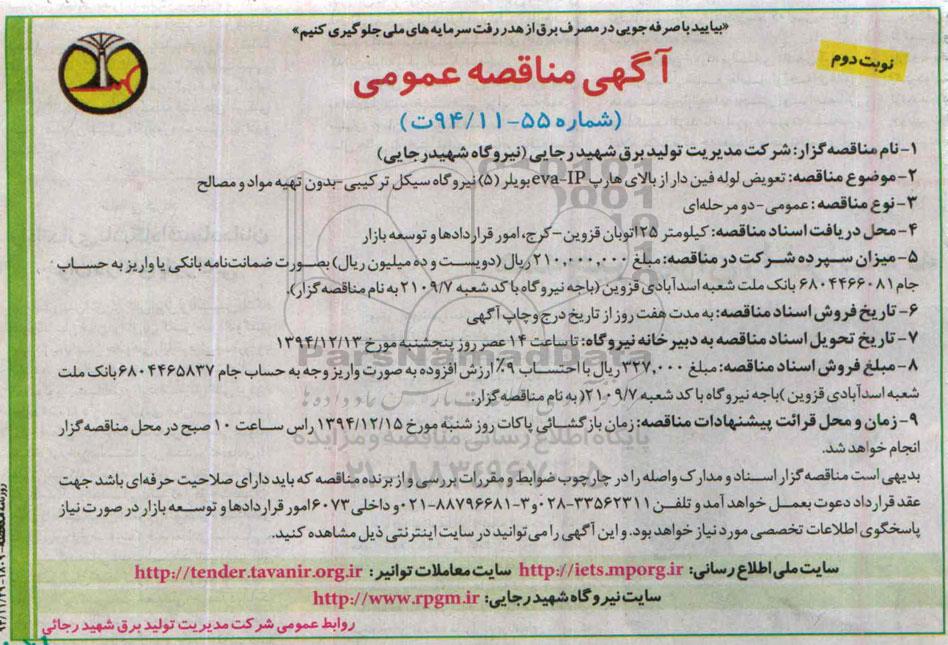 «بیایید با صرفه جویی در مصرف برق از هدر رفت سرمایه های ملی جلوگیری کنیم»
نوبت دوم
آگهی مناقصه عمومی
(شماره ۵۵-۹۴/۱۱ت)
۱- نام مناقصه گزار: شرکت مدیریت تولید برق شهید رجایی (نیروگاه شهید رجایی)
۲- موضوع مناقصه: تعویض لوله فین دار از بالای هارپ eva-IP بویلر (۵) نیروگاه سیکل ترکیبی-بدون تهیه مواد و مصالح
۳- نوع مناقصه: عمومی-دو مرحله‌ای
۴- محل دریافت اسناد مناقصه: کیلومتر ۲۵ اتوبان قزوین-کرج، امور قراردادها و توسعه بازار
۵- میزان سپرده شرکت در مناقصه: مبلغ ۲۱۰,۰۰۰,۰۰۰ ریال (دویست و ده میلیون ریال) بصورت ضمانت‌نامه بانکی یا واریز به حساب
جام ۶۸۰۴۴۶۶۰۸۱ بانک ملت شعبه اسدآبادی قزوین (باجه نیروگاه با کد شعبه ۲۱۰۹/۷ به نام مناقصه گزار).
۶- تاریخ فروش اسناد مناقصه: به مدت هفت روز از تاریخ درج و چاپ آگهی
۷- تاریخ تحویل اسناد مناقصه به دبیرخانه نیروگاه: تا ساعت ۱۴ عصر روز پنجشنبه مورخ ۱۳۹۴/۱۲/۱۳
۸- مبلغ فروش اسناد مناقصه: مبلغ ۳۲۷,۰۰۰ ریال با احتساب ۹٪ ارزش افزوده به صورت واریز وجه به حساب جام ۶۸۰۴۴۶۵۸۳۷ بانک ملت
شعبه اسدآبادی قزوین )باجه نیروگاه با کد شعبه ۲۱۰۹/۷( به نام مناقصه گزار.
۹- زمان و محل قرائت پیشنهادات مناقصه: زمان بازگشائی پاکات روز شنبه مورخ ۱۳۹۴/۱۲/۱۵ راس ساعت ۱۰ صبح در محل مناقصه گزار
انجام خواهد شد.
بدیهی است مناقصه گزار اسناد و مدارک واصله را در چارچوب ضوابط و مقررات بررسی و از برنده مناقصه که باید دارای صلاحیت حرفه‌ای باشد جهت
عقد قرارداد دعوت بعمل خواهد آمد و تلفن ۳۳۵۶۲۳۱۱-۰۲۸ و ۳-۸۸۷۹۶۶۸۱-۰۲۱ و داخلی ۶۰۷۳ امور قراردادها و توسعه بازار در صورت نیاز
پاسخگوی اطلاعات تخصصی مورد نیاز خواهد بود. و این آگهی را می‌توانید در سایت اینترنتی ذیل مشاهده کنید.
سایت ملی اطلاع رسانی: http://iets.mporg.ir سایت معاملات توانیر: http://tender.tavanir.org.ir
سایت نیروگاه شهید رجایی: http://www.rpgm.ir
روابط عمومی شرکت مدیریت تولید برق شهید رجائی
ParsNamadData
پایگاه اطلاع رسانی مناقصه و مزایده